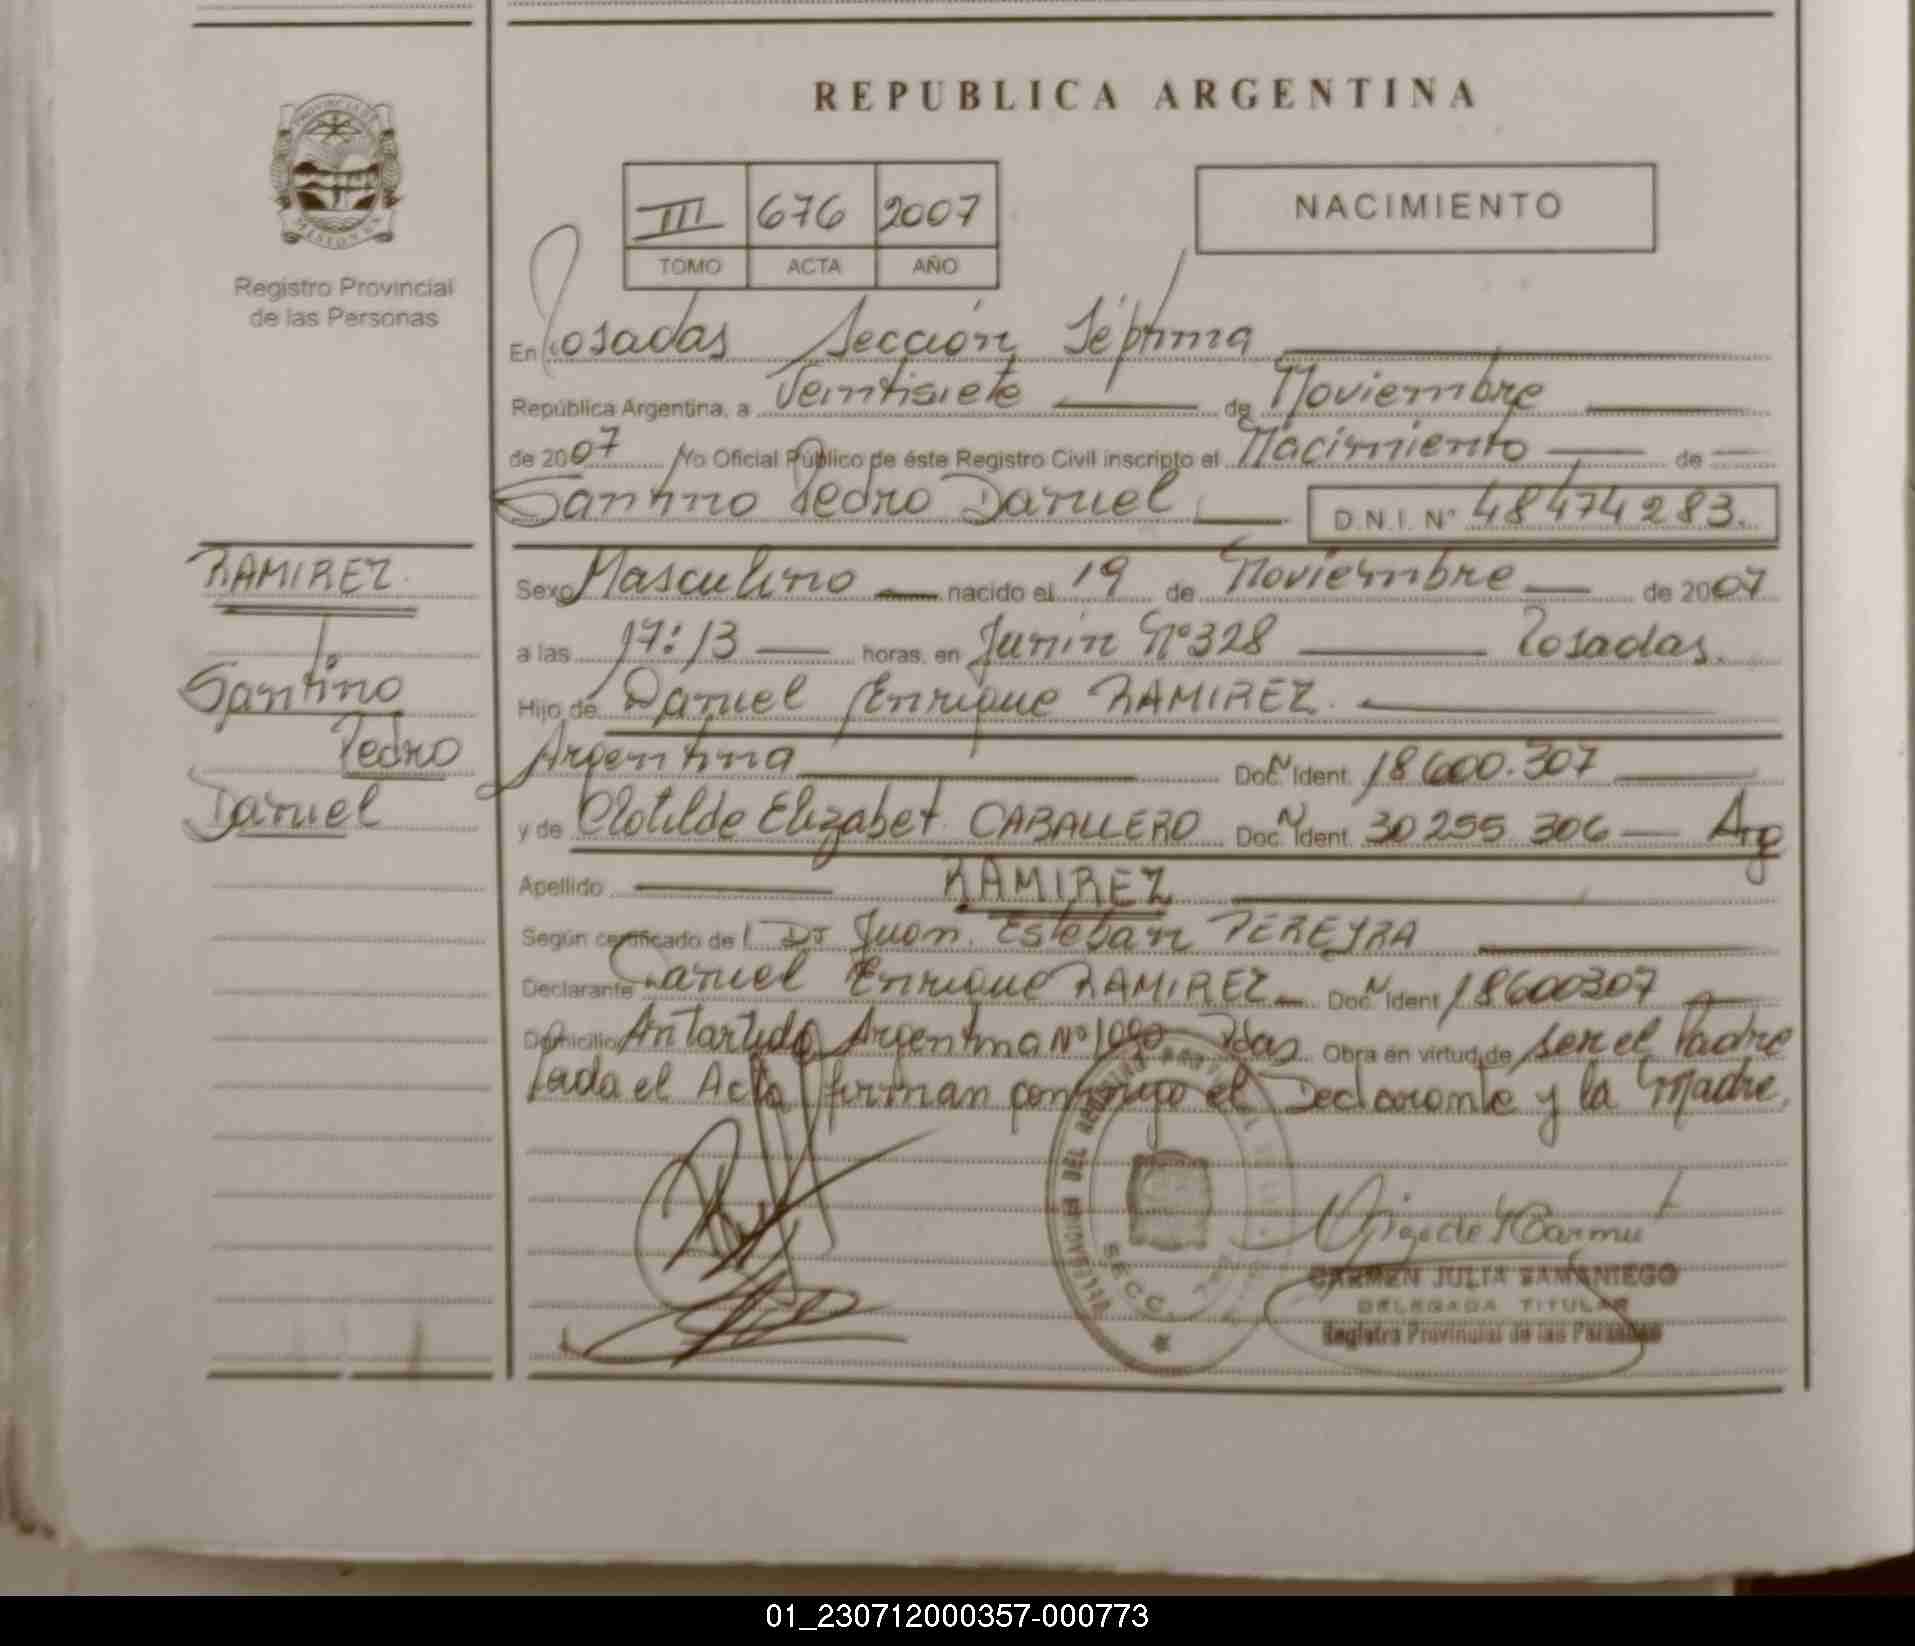 REPUBLICA ARGENTINA
PROVINCIA DE
MISIONES
Registro Provincial
de las Personas
III 676 2007
TOMO ACTA AÑO
NACIMIENTO
En Posadas Sección Séptima
República Argentina, a Veintisiete de Noviembre
de 2007 Yo Oficial Público de éste Registro Civil inscripto el Nacimiento de
Santino Pedro Daniel D.N.I. N° 48474283.
RAMIREZ.
Santino
Pedro
Daniel
Sexo Masculino nacido el 19 de Noviembre de 2007
a las 17:13 horas, en Junín N°328 Posadas.
Hijo de Daniel Enrique RAMIREZ.
Argentina Doc. N Ident. 18600.307
y de Clotilde Elizabet CABALLERO Doc. N Ident. 30255306 Arg
Apellido RAMIREZ
Según certificado de l Dr Juan Esteban PEREYRA
Declarante Daniel Enrique RAMIREZ Doc. N Ident 18600307
Domicilio Antartida Argentina N° Pdas Obra en virtud de ser el Padre
Leida el Acta firman conmigo el Declarante y la Madre,
DELEGACION DEL REGISTRO PROVINCIAL
SECC.
CARMEN JULIA SAMANIEGO
DELEGADA TITULAR
Registro Provincial de las Personas
01_230712000357-000773